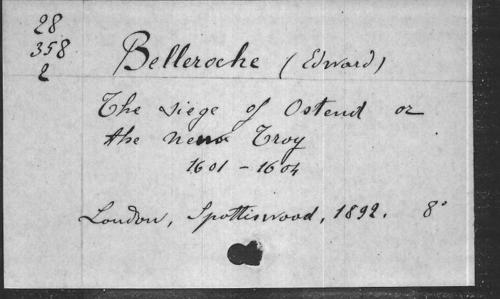 28
358
2
Belleroche (Edward)
The siege of Ostend or
the new Troy
1601 - 1604
London, Spottiswood, 1892. 8°